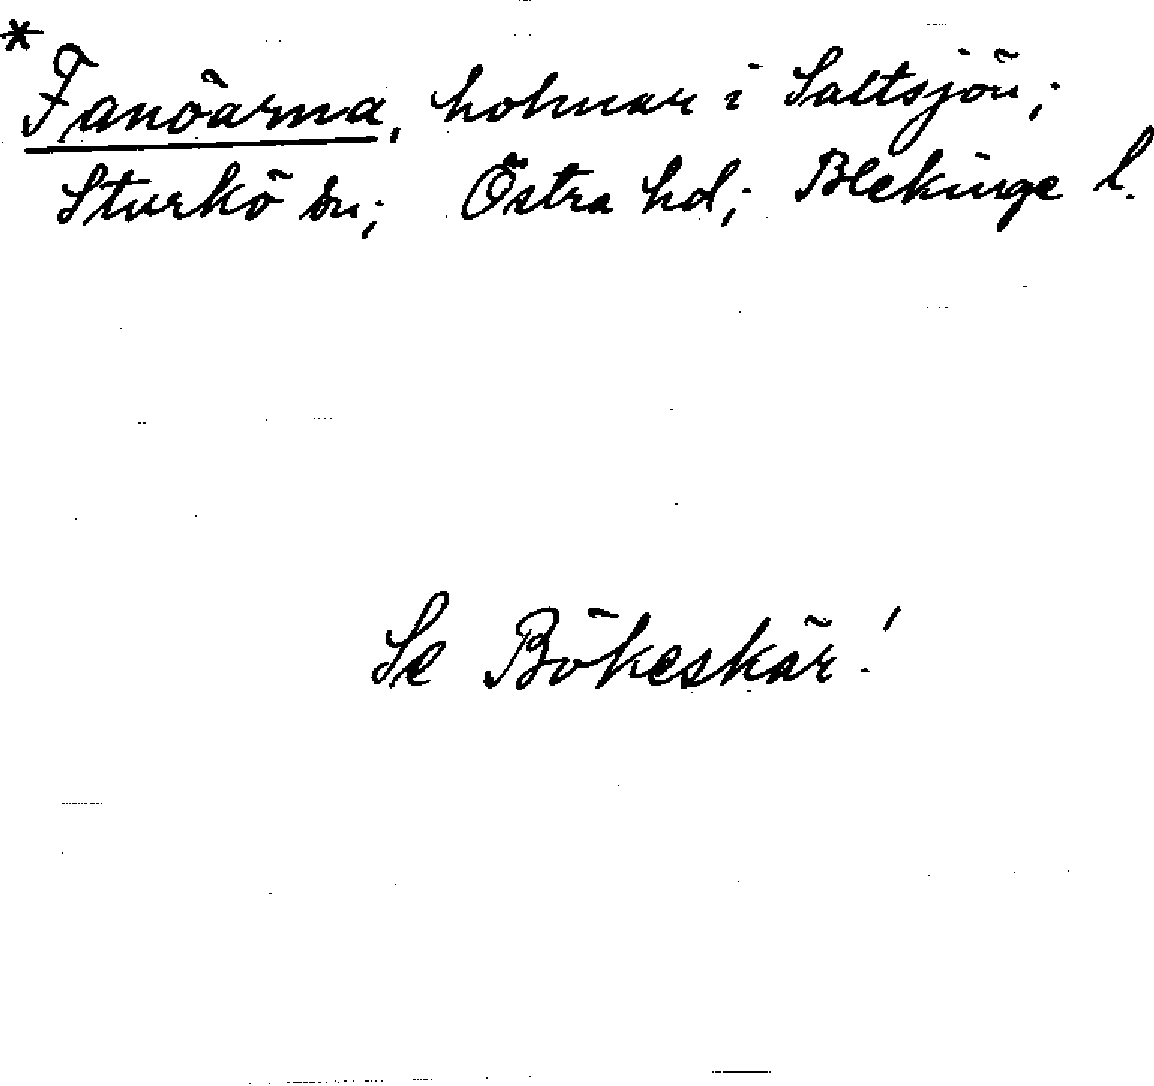 * Fanöarna, holmar i Saltsjön;
Sturkö sn; Östra hd; Blekinge l.
Se Bökeskär!